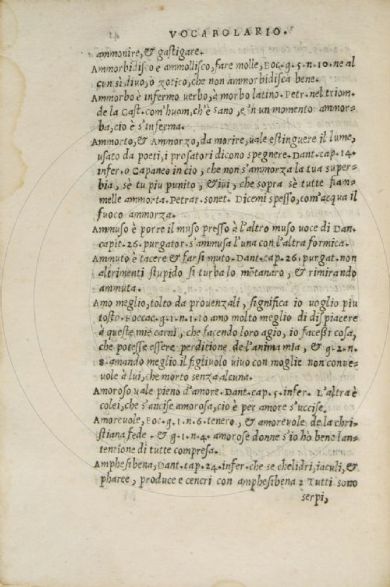 VOCABOLARIO.
ammonire, & gastigare.
Ammorbidisco e ammollisco, fare molle, Boc. g. 5. n. 10. ne al
cun sì divo, o zotico, che non ammorbidisca bene.
Ammorbo è infermo verbo, à morbo latino. Petr. nel triom.
de la Cast. com'huom, ch'è sano, e'n un momento ammor-
ba, cio è s'inferma.
Ammorto, & Ammorzo, da morire, uale estinguere il lume,
usato da poeti, i prosatori dicono spegnere. Dant. cap. 14.
infer. o Capaneo in cio, che non s'ammorza la tua super-
bia, sè tu piu punito, & ivi, che sopra sè tutte fiam-
melle ammorta. Petrar. sonet. Dicemi spesso, com'acqua il
fuoco ammorza.
Ammuso è porre il muso presso è l'altro muso voce di Dan.
capit. 26. purgator. s'ammusa l'una con l'altra formica.
Ammuto è tacere & farsi muto. Dant. cap. 26. purgat. non
altrimenti stupido si turba lo mōtanaro, & rimirando
ammuta.
Amo meglio, tolto da prouenzali, significa io uoglio piu
tosto. Boccac. g. 1. n. 10 amo molto meglio di dispiacere
à queste mie carni, che facendo loro agio, io facessi cosa,
che potesse essere perditione de l'anima mia, & g. 2. n.
8. amando meglio il figliuolo uiuo con moglie non conue-
uole à lui, che morto senza alcuna.
Amoroso uale pieno d'amore. Dant. cap. 5. infer. L'altra è
colei, che s'ancise amorosa, cio è per amore s'uccise.
Amoreuole, Boc. g. 1. n. 6. tenero, & amoreuole de la chri-
stiana fede. & g. 1. n. 4. amorose donne s'io ho bene l'an-
tentione di tutte compresa.
Amphesibena, Dant. cap. 24. infer. che se chelidri, iaculi, &
pharee, produce e cencri con amphesibena 2 Tutti sono
serpi,